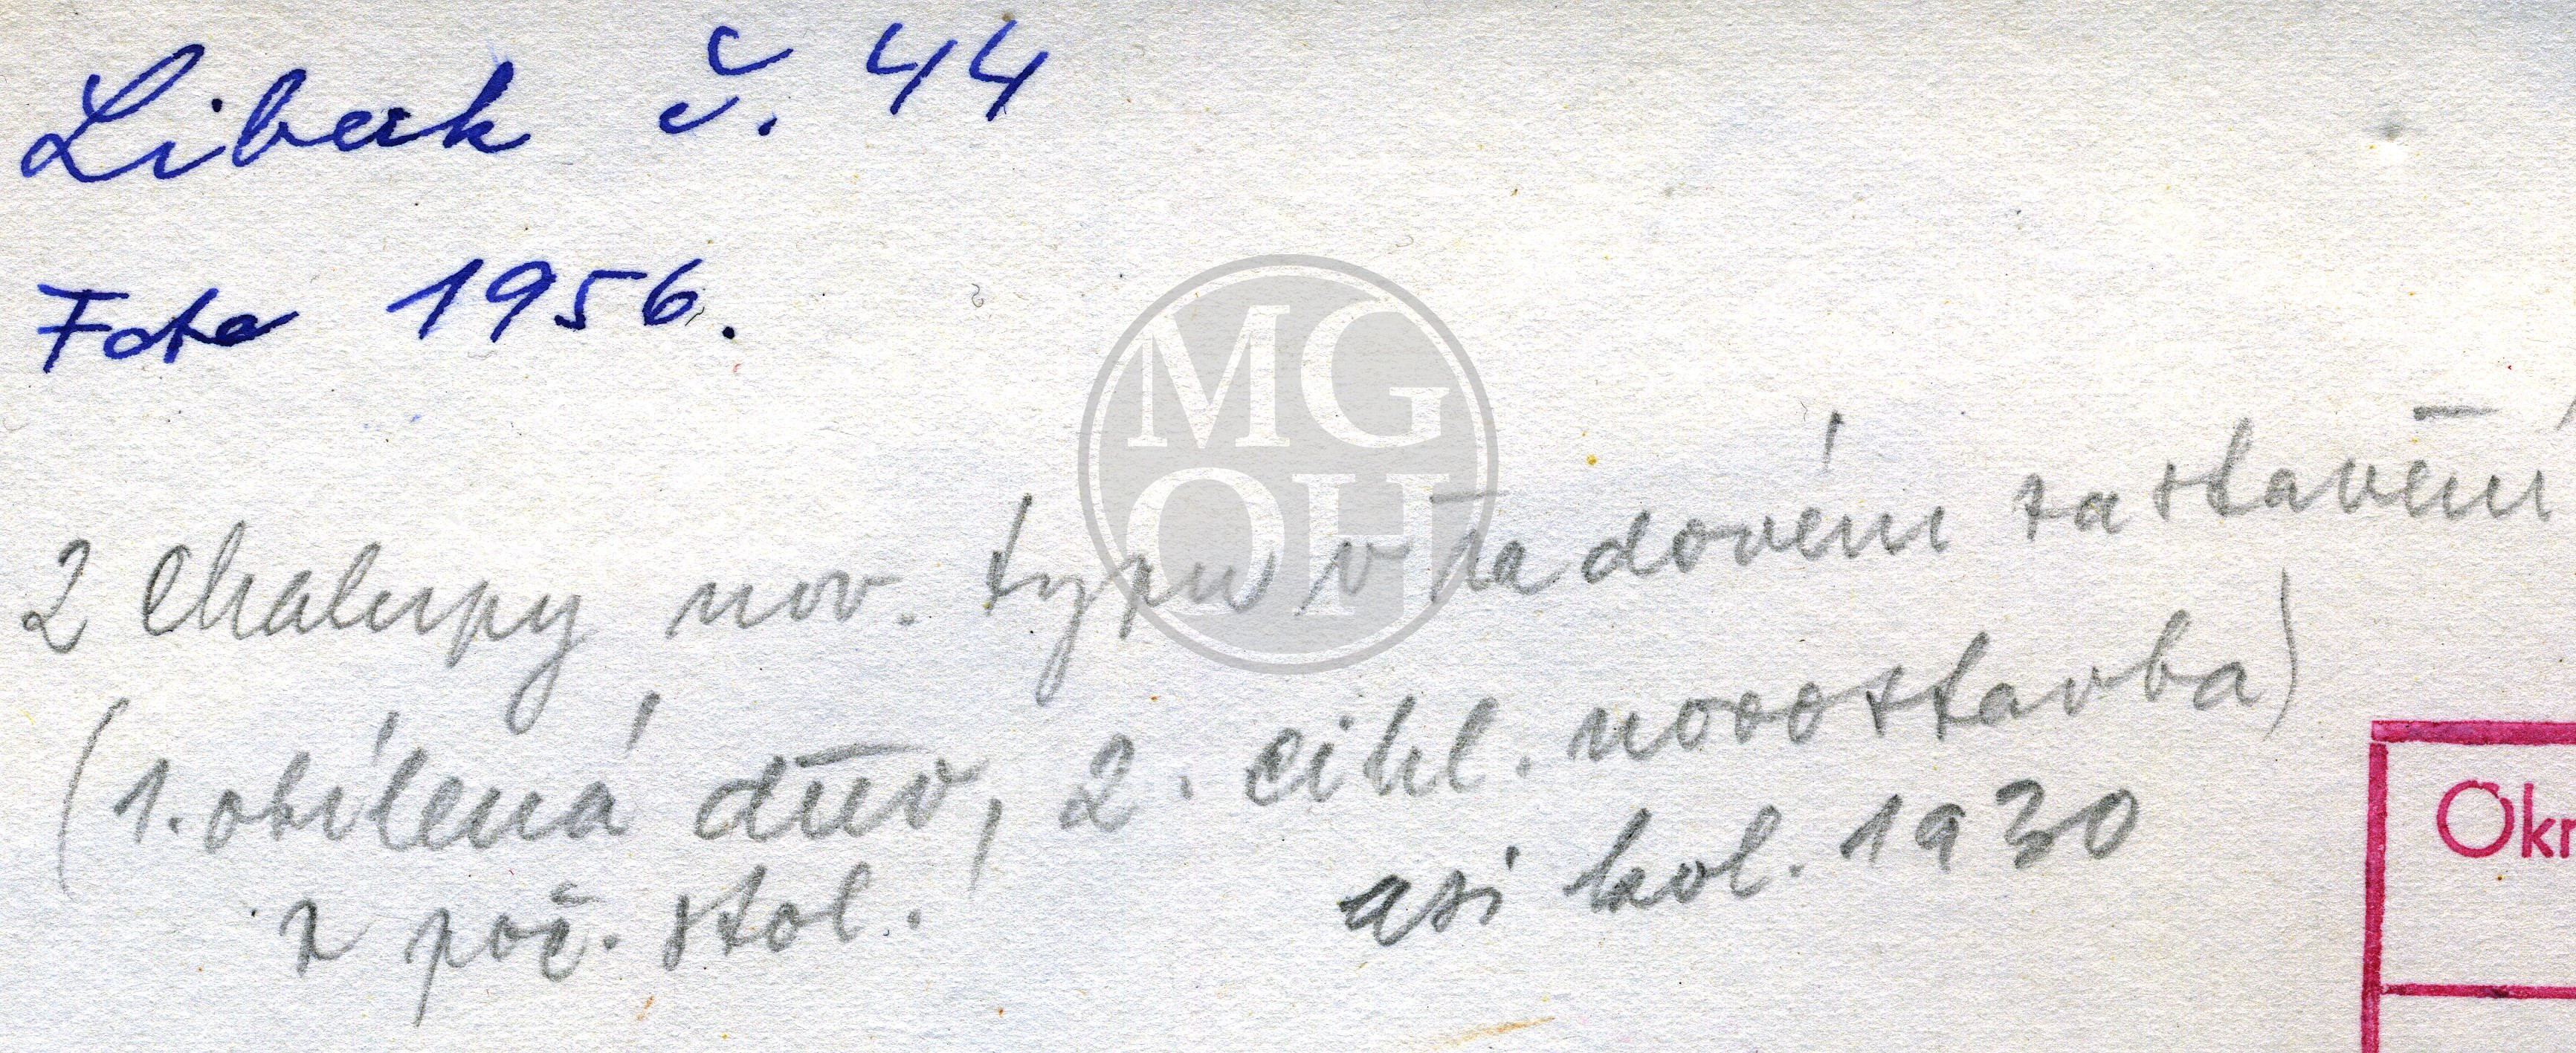 Libeek č. 44
Foto 1956.
MG
OH
2 chalupy nov. typu v řadovém zastavění
(1. obílená dřev, 2. cihl. novostavba)
z poč. stol. asi kol. 1930
Okr